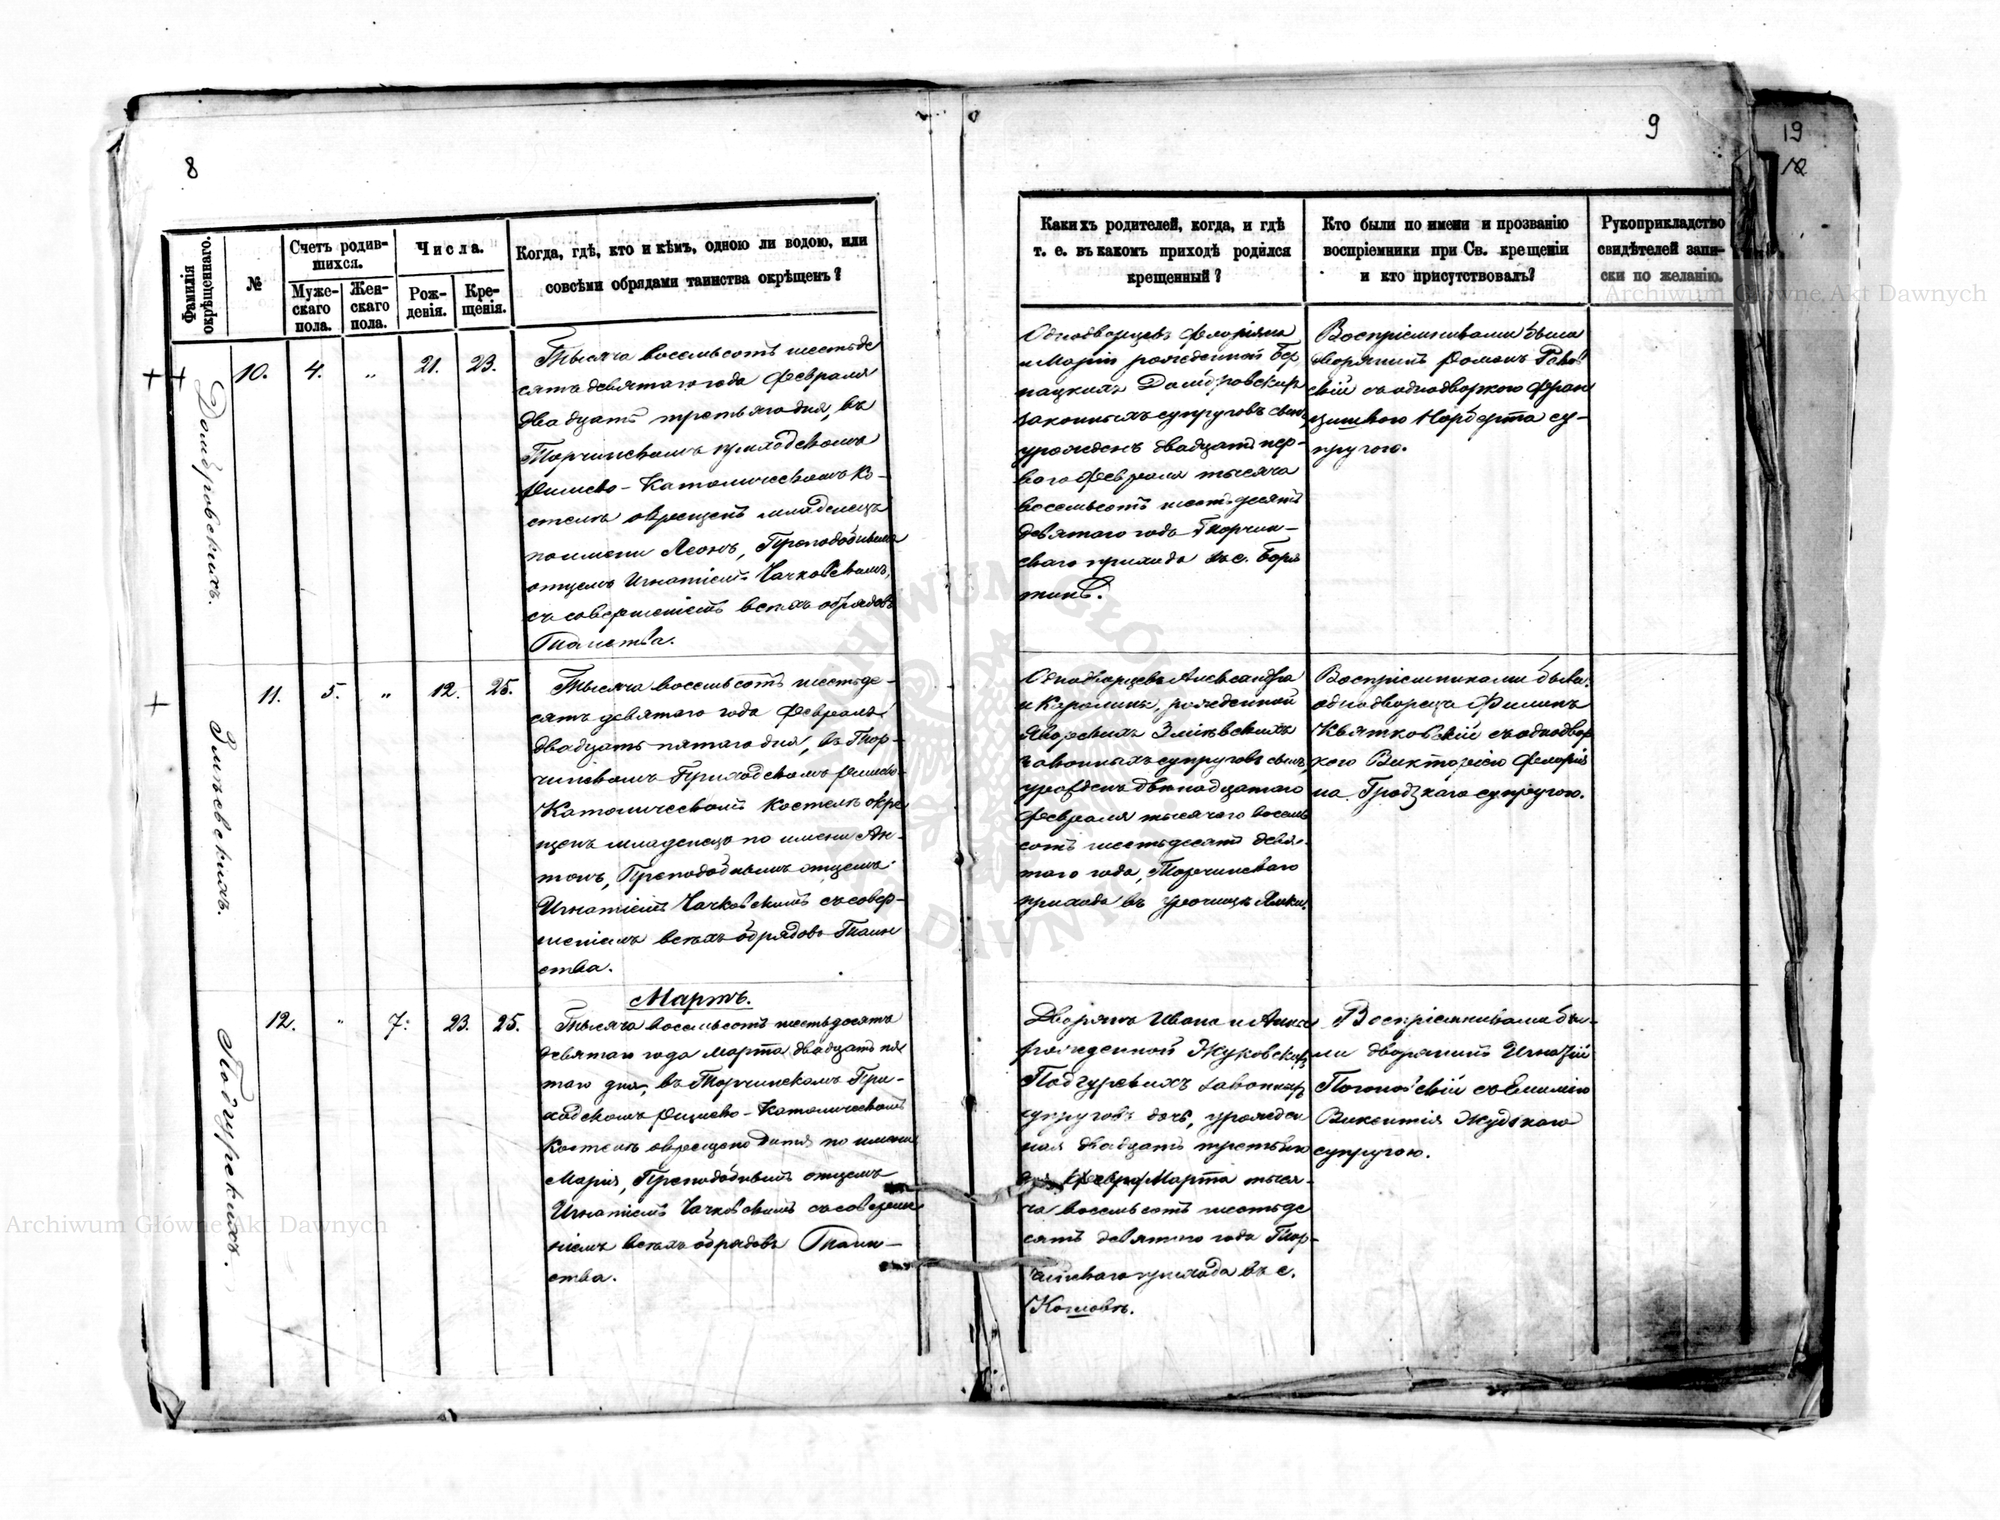 8
Фамилія
окрѣщеннаго.
№
Счетъ родив-
шихся.
Муже-
скаго
пола.
Жен-
скаго
пола.
Числа.
Рож-
денія.
Кре-
щенія.
Когда, гдѣ, кто и кѣмъ, одною ли водою, или
совсѣми обрядами таинства окрѣщенъ?
Домбровскихъ.
10. 4. „ 21. 23.
Тысяча восемьсотъ шестьде
сятъ девятаго года Февраля
двадцать третьяго дня, въ
Торчинскомъ приходскомъ
Римско-Католическомъ Ко-
стелѣ окрещенъ младенецъ
по имени Леонъ, Преподобнымъ
отцемъ Игнатіемъ Чачковскимъ,
съ совершеніемъ всѣхъ обрядовъ
Таинства.
Змѣевскихъ.
11. 5. „ 12. 25.
Тысяча восемьсотъ шестьде-
сятъ девятаго года Февраля
двадцать пятаго дня, въ Тор-
чинскомъ Приходскомъ Римско-
Католическомъ Костелѣ окре
щенъ младенецъ по имени Ан-
тонъ, Преподобнымъ отцемъ
Игнатіемъ Чачковскимъ съ совер-
шеніемъ всѣхъ обрядовъ Таин
ства.
Мартъ.
Подгурскихъ.
12. „ 7. 23. 25.
Тысяча восемьсотъ шестьдесятъ
девятаго года Марта двадцать пя
таго дня, въ Торчинскомъ При-
ходскомъ Римско-Католическомъ
Костелѣ окрещено дитя по имени
Марія, Преподобнымъ отцемъ
Игнатіемъ Чачковскимъ съ соверше
ніемъ всѣхъ обрядовъ Таин-
ства.
9
19
Какихъ родителей, когда, и гдѣ
т. е. въ какомъ приходѣ родился
крещенный?
Кто были по имени и прозванію
воспріемники при Св. крещеніи
и кто присутствовалъ?
Рукоприкладство
свидѣтелей запи-
ски по желанію.
Однодворцевъ Флоріяна
и Маріи рожденной Бер
нацкихъ Домбровскихъ
законныхъ супруговъ сынъ,
урожденъ двадцать пер-
вого Февраля тысяча
восемьсотъ шестьдесятъ
девятаго года Торчин-
скаго прихода въ с. Боря
тинѣ.
Воспріемниками были
дворянинъ Романъ
скій съ однодворкою Фран
цишкою Норберта су-
пругою.
Однодворцевъ Александра
и Каролины, рожденной
Яворскихъ Змѣевскихъ
законныхъ супруговъ сынъ,
урожденъ двенадцатаго
Февраля тысячаго восемь
сотъ шестьдесятъ девя-
таго года, Торчинскаго
прихода въ урочищѣ
Воспріемниками были
однодворецъ Филипъ
Квятковскій съ однодвор
кою Викторіею Флорія
на Гродзкаго супругою.
Дворянъ Ивана и Анны
рожденной Жуковскихъ
Подгурскихъ законныхъ
супруговъ дочь, урожден
ная двадцать третьяго
дня Марта тыся-
ча восемьсотъ шестьде
сятъ девятаго года Тор-
чинскаго прихода въ с.
Коповъ.
Воспріемниками бы-
ли дворянинъ Игнатій
скій съ Емиліею
Викентія
супругою.
Archiwum Główne Akt Dawnych
Archiwum Główne Akt Dawnych